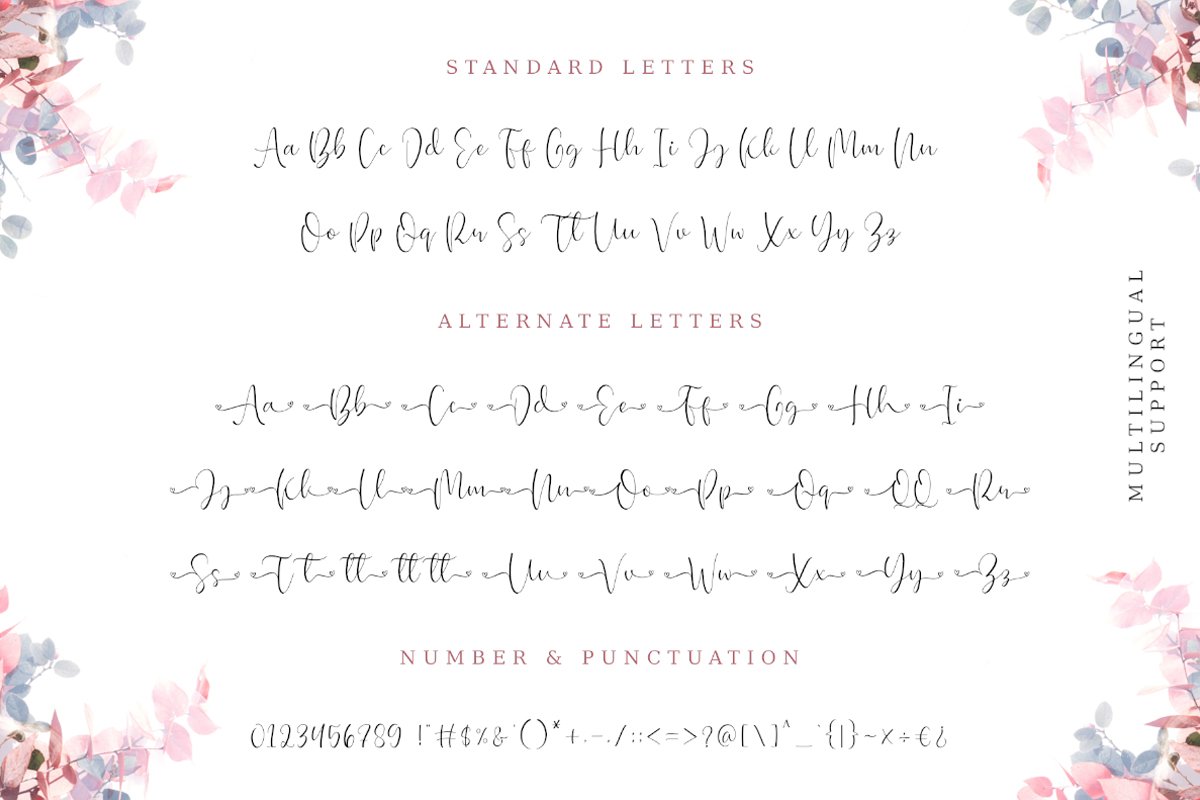 STANDARD LETTERS
Aa Bb Cc Dd Ee Ff Gg Hh Ii Jj Kk Ll Mm Nn
Oo Pp Qq Rr Ss Tt Uu Vv Ww Xx Yy Zz
ALTERNATE LETTERS
Aa Bb Cc Dd Ee Ff Gg Hh Ii
Jj Kk Ll Mm Nn Oo Pp Qq QQ Rr
Ss T t tt tt tt Uu Vv Ww Xx Yy Zz
NUMBER & PUNCTUATION
0123456789 !"#$%&'()*+,-./:;<=>?@[\]^_`{|}~×÷€¿
MULTILINGUAL
SUPPORT